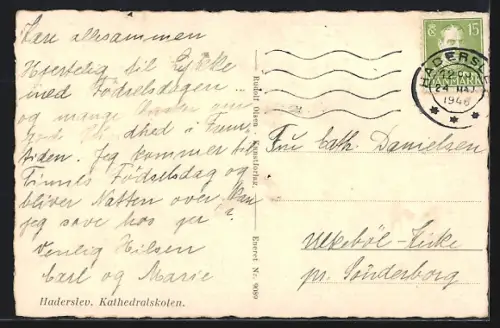 Kære allesammen
Hjertelig til Lykke
med Födselsdagen
og mange
Fremtiden. Jeg kommer til
Finnes Födselsdag og
bliver Natten over kan
jeg sove hos jer?
Venlig Hilsen
Carl og Marie
Haderslev. Kathedralskolen.
Rudolf Olsen . Kunstforlag. Eneret Nr. 9089
15
HADERSLEV
24 MAJ
1946
* * *
Fru Cath. Danielsen
Ulkeböl-Kirke
pr. Sönderborg